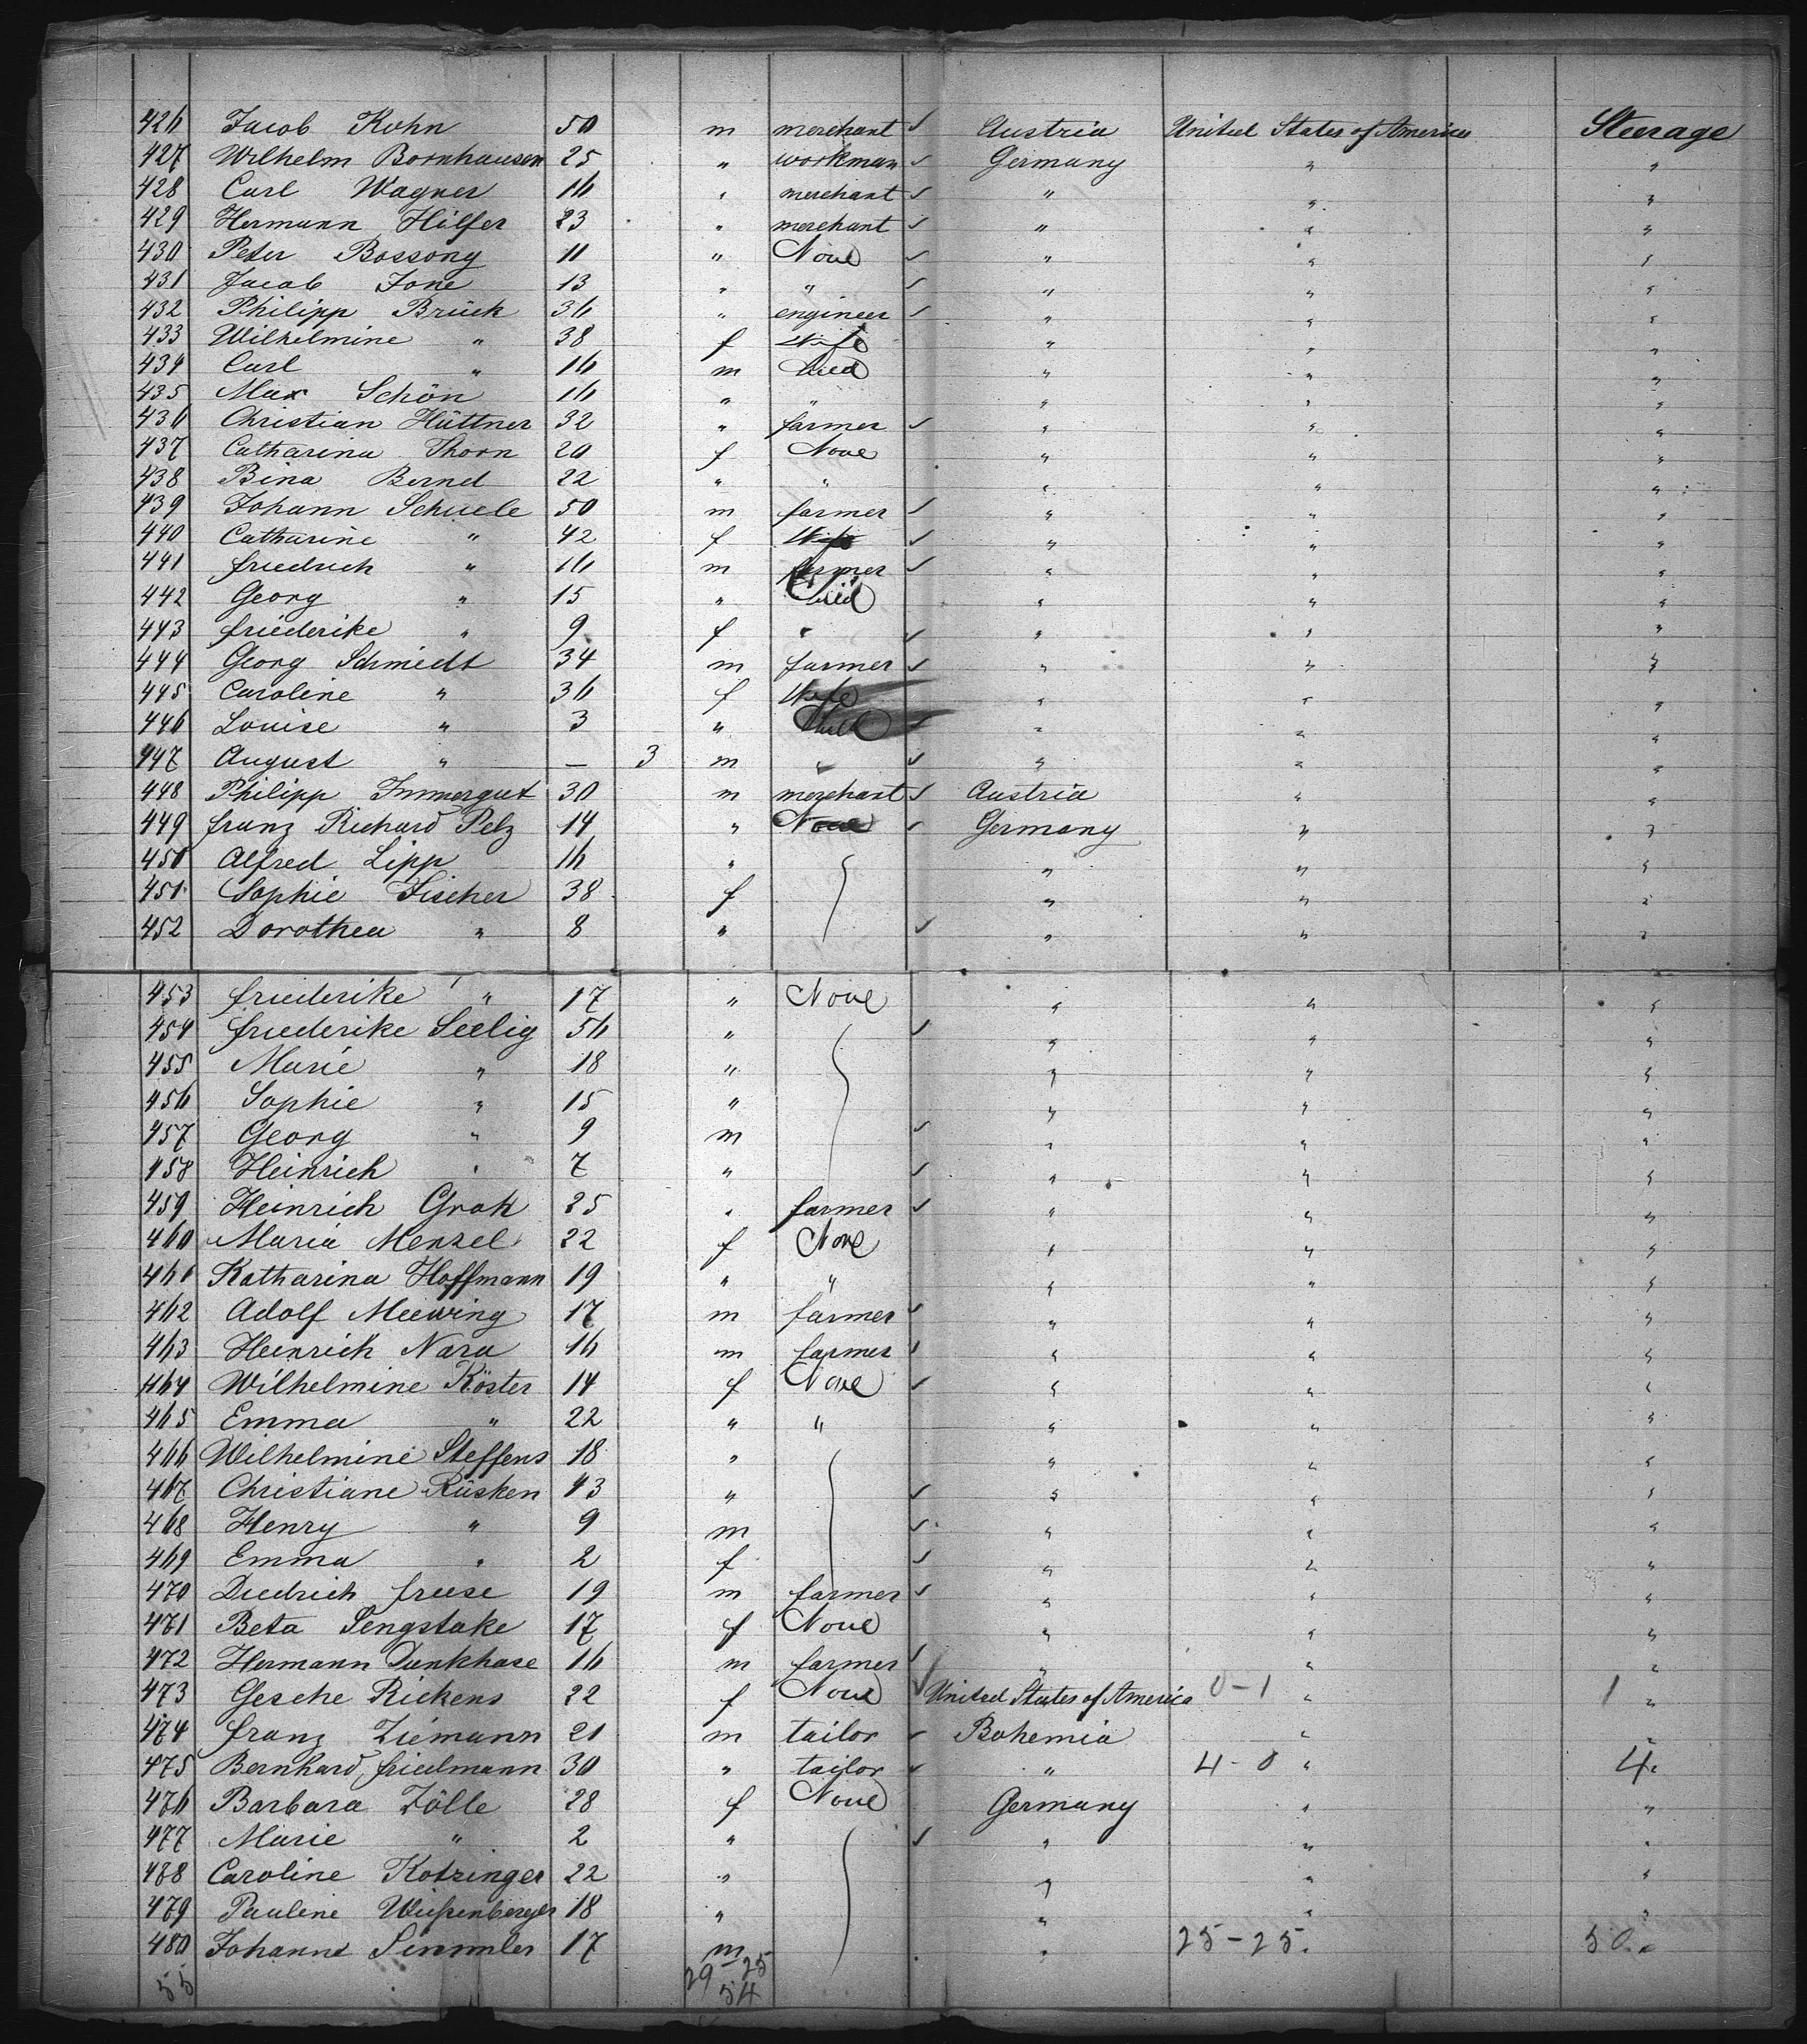 426 Jacob Kohn 50 m merchant ✓ Austria United States of America Steerage
427 Wilhelm Bornhausen 25 " workman ✓ Germany " "
428 Carl Wagner 16 " merchant ✓ " " "
429 Hermann Hilfer 23 " merchant ✓ " " "
430 Peter Bossong 11 " None ✓ " " "
431 Jacob Fone 13 " " ✓ " " "
432 Philipp Brück 36 " engineer ✓ " " "
433 Wilhelmine " 38 f Wife " " "
434 Carl " 16 m Child " " "
435 Max Schön 16 " " " " "
436 Christian Hüttner 32 " farmer ✓ " " "
437 Catharina Thorn 20 f None " " "
438 Bina Bernd 22 " " " " "
439 Johann Schuele 50 m farmer ✓ " " "
440 Catharine " 42 f Wife ✓ " " "
441 Friedrich " 16 m farmer ✓ " " "
442 Georg " 15 " Child " " "
443 Friederike " 9 f " ✓ " " "
444 Georg Schmidt 34 m farmer ✓ " " "
445 Caroline " 36 f Wife " " "
446 Louise " 3 " Child ✓ " " "
447 August " — 3 m " ✓ " " "
448 Philipp Immergut 30 m merchant ✓ Austria " "
449 Franz Richard Pelz 14 " None ✓ Germany " "
450 Alfred Lipp 16 " " " "
451 Sophie Fischer 38 f " " "
452 Dorothea " 8 " ✓ " " "
453 Friederike " 17 " None " " "
454 Friederike Seelig 56 " ✓ " " "
455 Marie " 18 " " " "
456 Sophie " 15 " " " "
457 Georg " 9 m ✓ " " "
458 Heinrich " 7 " ✓ " " "
459 Heinrich Grok 25 " farmer ✓ " " "
460 Maria Menzel 22 f None " " "
461 Katharina Hoffmann 19 " " " " "
462 Adolf Meewing 17 m farmer ✓ " " "
463 Heinrich Nara 16 m farmer ✓ " " "
464 Wilhelmine Köster 14 f None ✓ " " "
465 Emma " 22 " " " " "
466 Wilhelmine Steffens 18 " " " "
467 Christiane Rüsken 43 " ✓ " " "
468 Henry " 9 m ✓ " " "
469 Emma " 2 f ✓ " " "
470 Diedrich Friese 19 m farmer ✓ " " "
471 Beta Sengstake 17 f None " " "
472 Hermann Dunkhase 16 m farmer ✓ " " "
473 Gesche Rickens 22 f None ✓ United States of America 0-1 " 1 "
474 Franz Ziemann 21 m tailor ✓ Bohemia " "
475 Bernhard Friedmann 30 " tailor ✓ " 4-0 " 4 "
476 Barbara Zölle 28 f None Germany " "
477 Marie " 2 " ✓ " " "
488 Caroline Kotzinger 22 " " " "
479 Pauline Weißenberger 18 " " " "
480 Johann Simmler 17 m " 25-25 " 50 "
55 29-25
54